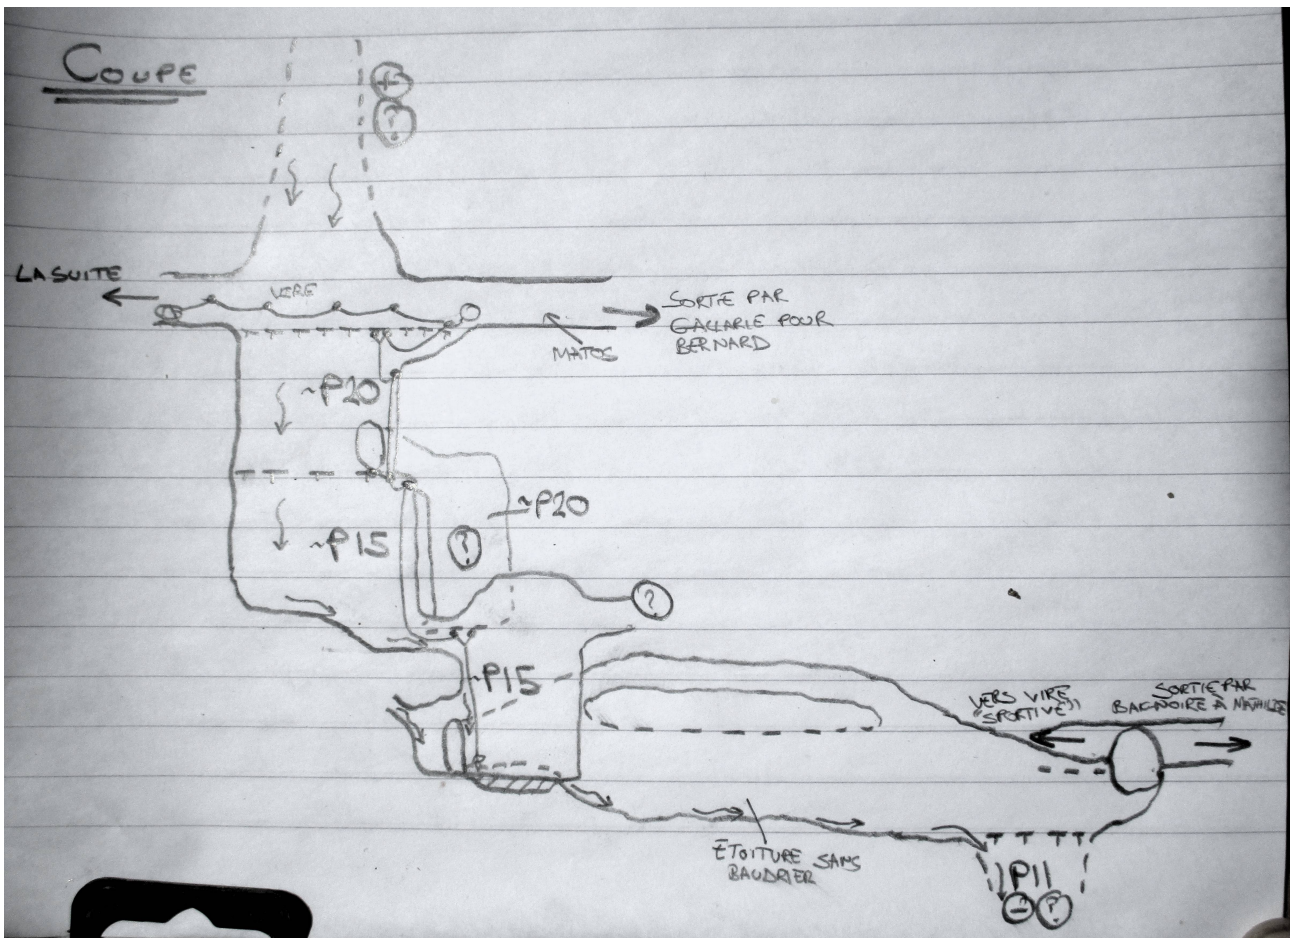 COUPE
+
?
LA SUITE
VIRE
SORTIE PAR
GALLARIE POUR
BERNARD
MATOS
~P20
~P20
~P15
?
?
~P15
VERS VIRE
"SPORTIVE"
SORTIE PAR
BAGNOIRE À MATHILDE
ÉTOITURE SANS
BAUDRIER
P11
-
?